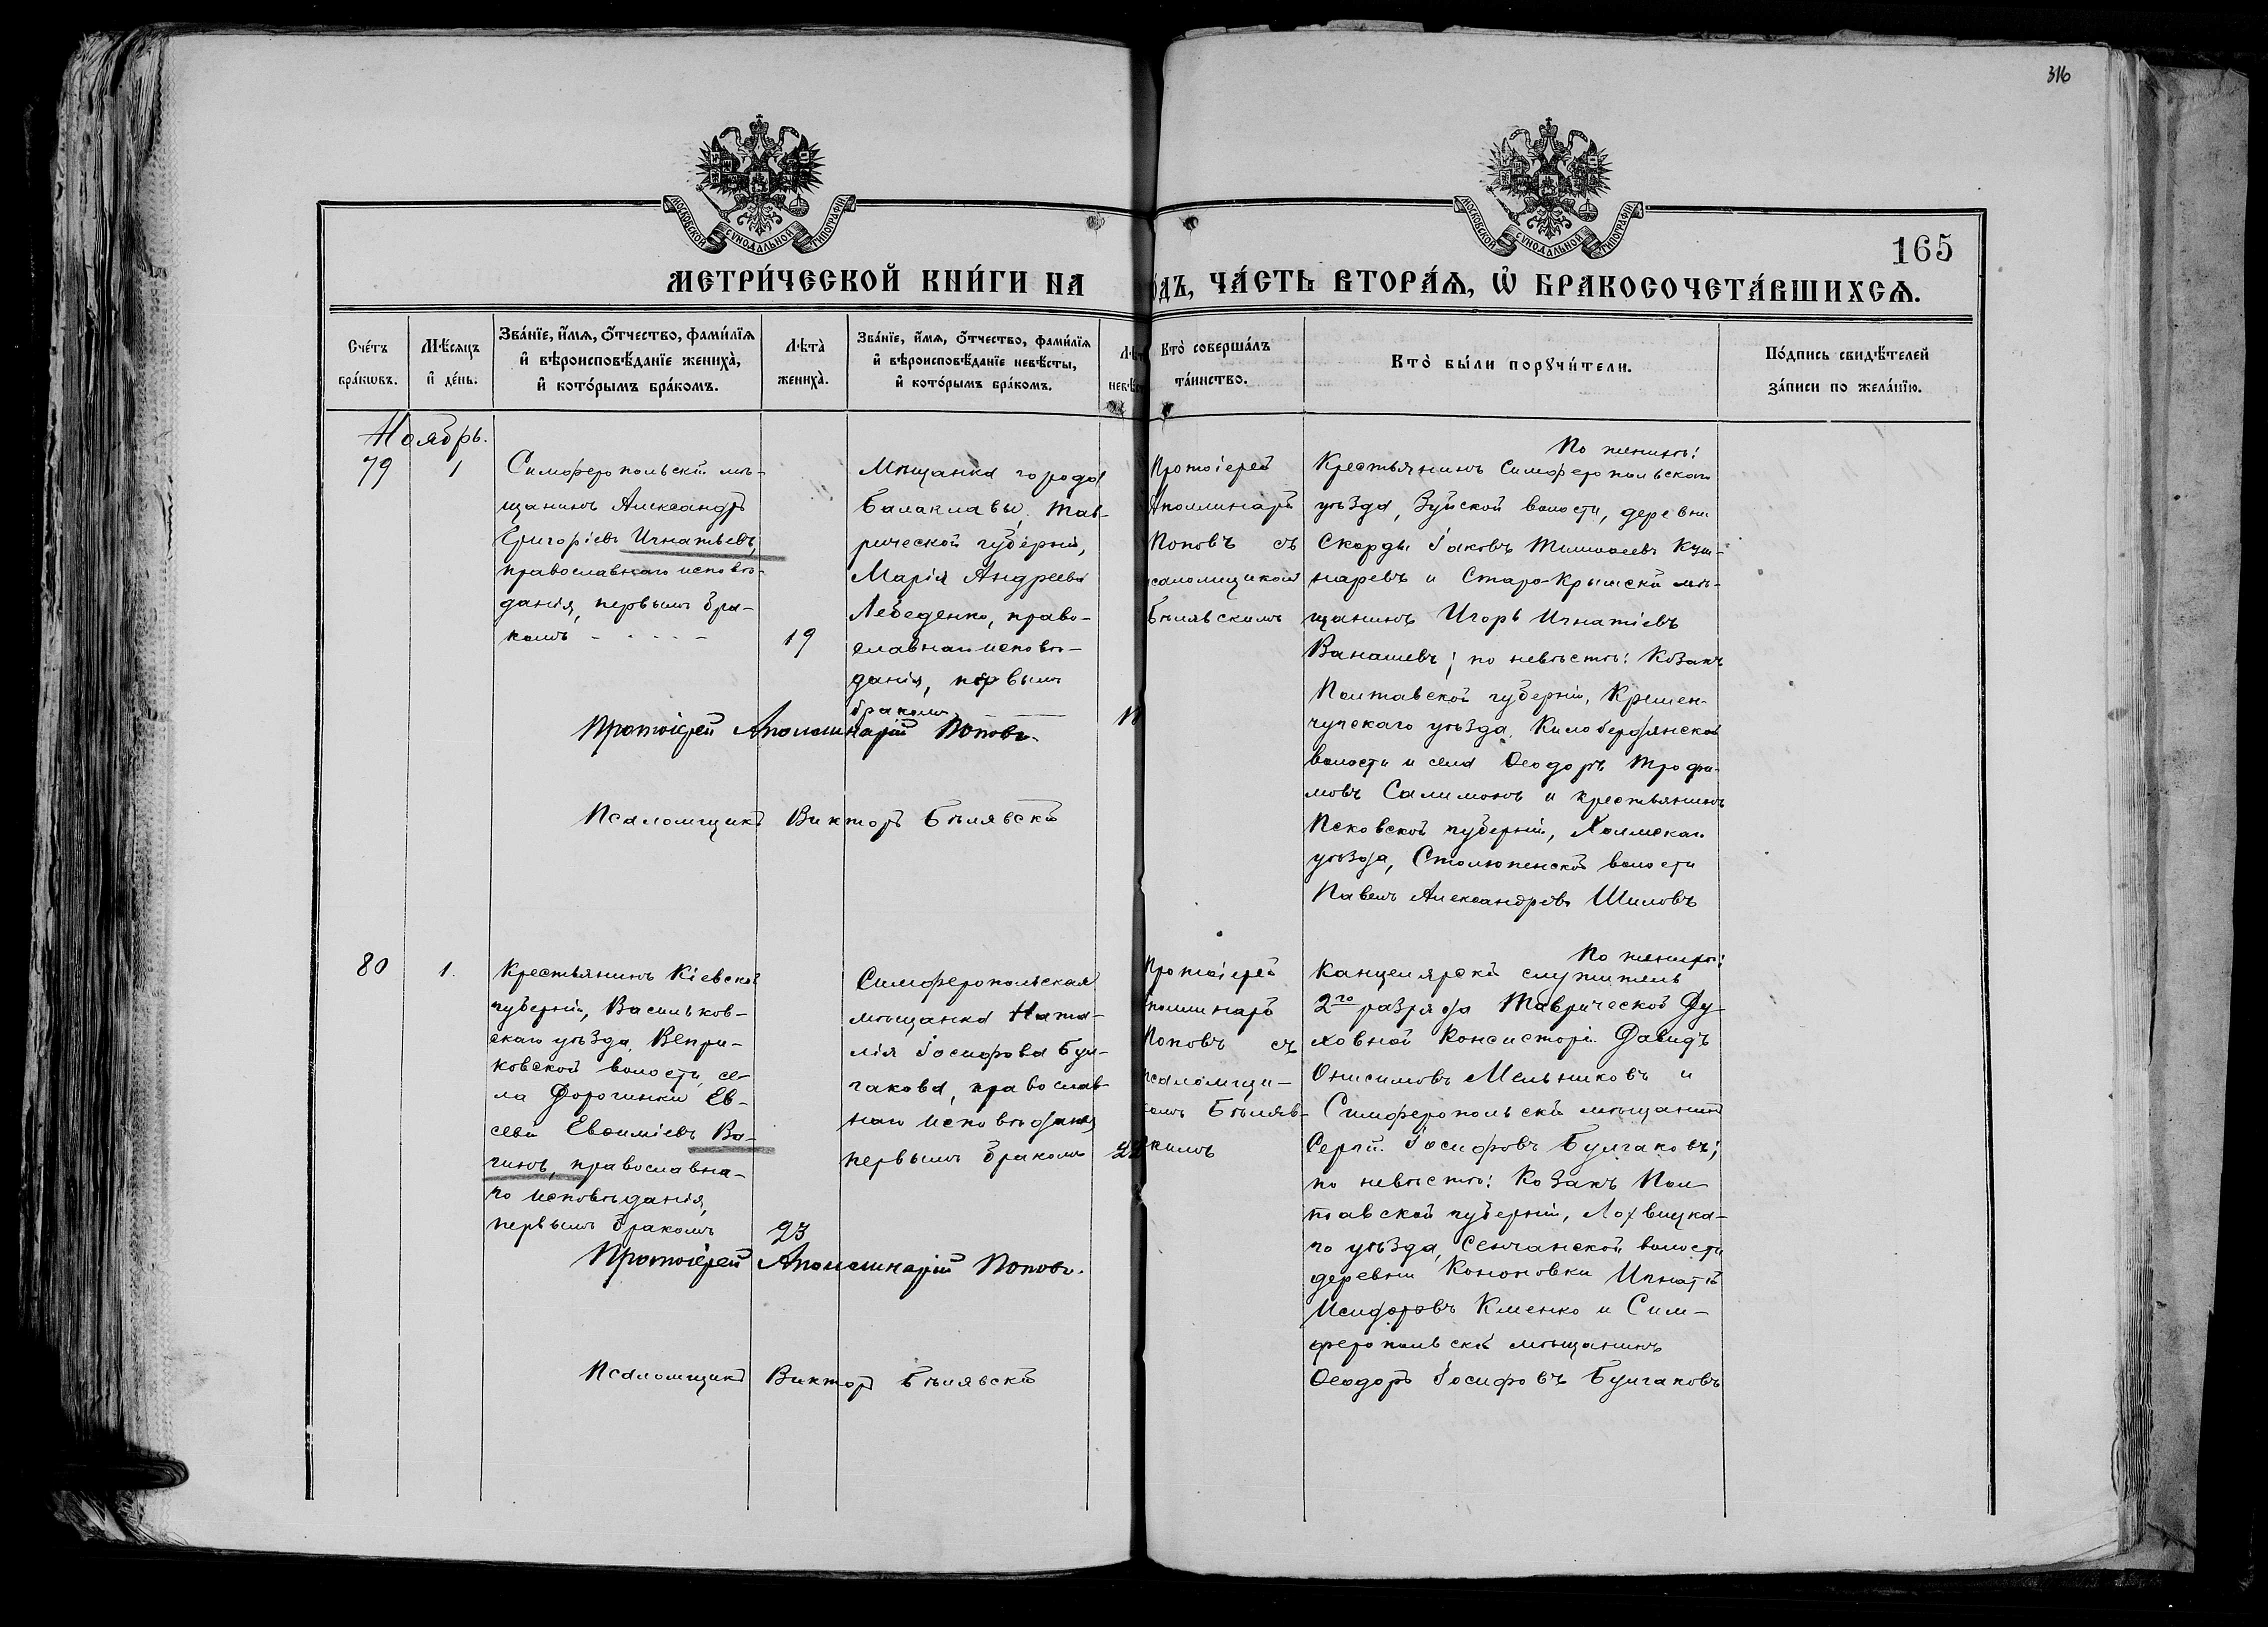 316
МОСКОВСКОЙ СѴНОДАЛЬНОЙ ТИПОГРАФІИ
МОСКОВСКОЙ СѴНОДАЛЬНОЙ ТИПОГРАФІИ
165
МЕТРИ́ЧЕСКОЙ КНИ́ГИ НА
ОДЪ, ЧА́СТЬ ВТОРА́Ѧ, Ѡ БРАКОСОЧЕТА́ВШИХСѦ.
Сче́тъ
бра́кѡвъ.
Мѣ́сяцъ
и де́нь.
Зва́нїе, и́мѧ, ѻ́тчество, фами́лїѧ
и҆ вѣроисповѣ́данїе жениха̀,
и҆ кото́рымъ бра́комъ.
Лѣ́та̀
жениха̀.
Зва́нїе, и́мѧ, ѻ́тчество, фами́лїѧ
и҆ вѣроисповѣ́данїе невѣ́сты,
и҆ кото́рымъ бра́комъ.
Лѣт
невѣс
Кто̀ соверша́лъ
та́инство.
Кто̀ бы́ли порꙋчи́тели.
По́дпись свидѣ́телей
за́писи по жела́нїю.
Ноябрь.
79
1
Симферопольскій мѣ-
щанинъ Александръ
Григоріевъ Игнатьевъ,
православнаго исповѣ-
данія, первымъ бра-
комъ
19
Мѣщанка города
Балаклавы, Тав-
рической губерніи,
Марія Андреева
Лебеденко, право-
славнаго исповѣ-
данія, первымъ
бракомъ
Протоіерей
Аполлинарій
Поповъ съ
псаломщикомъ
Бѣлявскимъ
По женихѣ:
Крестьянинъ Симферопольскаго
уѣзда, Зуйской волости, деревни
Скорды Іаковъ Куш-
наревъ и Старо-Крымскій мѣ-
щанинъ Игорь Игнатіевъ
Ванашевъ; по невѣстѣ: Козакъ
Полтавской губерніи, Кремен-
чугскаго уѣзда, Килобердянской
волости и села Ѳеодоръ Трофи-
мовъ Салимонъ и крестьянинъ
Псковской губерніи, Холмскаго
уѣзда, волости
Павелъ Александровъ Шиловъ
Протоіерей Аполлинарій Поповъ.
Псаломщикъ Викторъ Бѣлявскій
80
1.
Крестьянинъ Кіевской
губерніи, Васильков-
скаго уѣзда, Вепри-
ковской волости, се-
ла Дорогинки Ев-
севій Евѳиміевъ Ва-
гинъ, православна-
го исповѣданія,
первымъ бракомъ
23
Симферопольская
мѣщанка Ната-
лія Іосифова Бул-
гакова, православ-
наго исповѣданія,
первымъ бракомъ
22
Протоіерей
Аполлинарій
Поповъ съ
псаломщи-
комъ Бѣляв-
скимъ
По женихѣ:
Канцелярскій служитель
2го разряда Таврической Ду-
ховной Консисторіи Давидъ
Онисимовъ Мельниковъ и
Симферопольскій мѣщанинъ
Сергій Іосифовъ Булгаковъ;
по невѣстѣ: Козакъ Пол-
тавской губерніи, Лохвицка-
го уѣзда, Сенчанской волости
деревни Кононовки Игнатій
Исидоровъ Клменко и Сим-
феропольскій мѣщанинъ
Ѳеодоръ Іосифовъ Булгаковъ
Протоіерей Аполлинарій Поповъ.
Псаломщикъ Викторъ Бѣлявскій